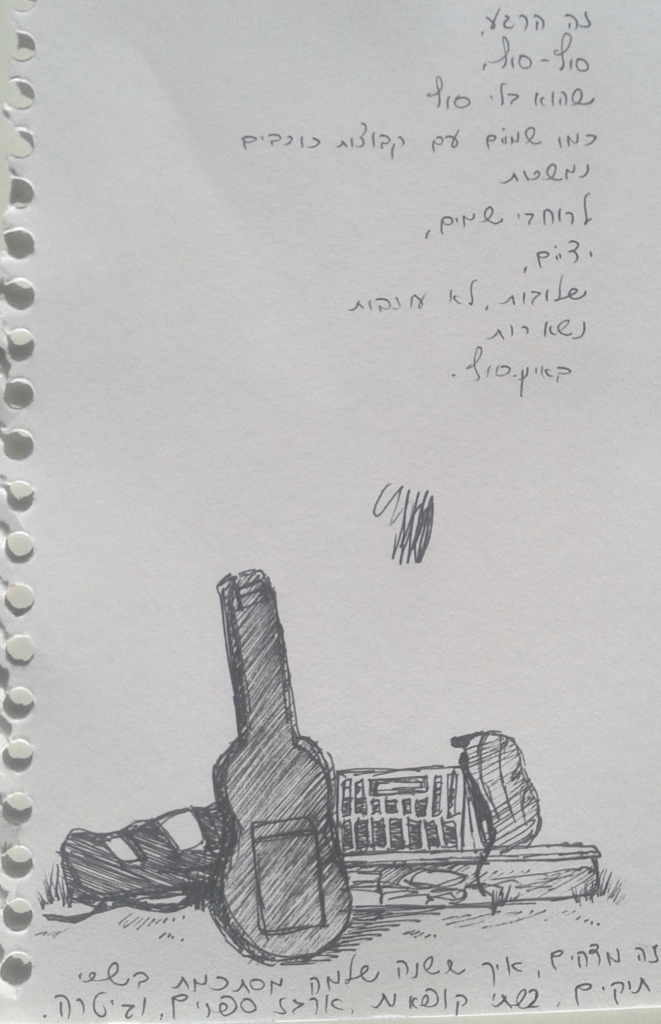 זה הרגע,
סוף-סוף,
שהוא בלי סוף
כמו שמיים עם קבוצות כוכבים
נמשכות
לרוחבי שמים,
ידיים,
שלובות, לא עוזבות
נשארות
באין-סוף.
זה מדהים, איך ששנה שלמה מסתכמת בשני
תיקים, בשתי קופסאות, ארגז ספרים, וגיטרה.